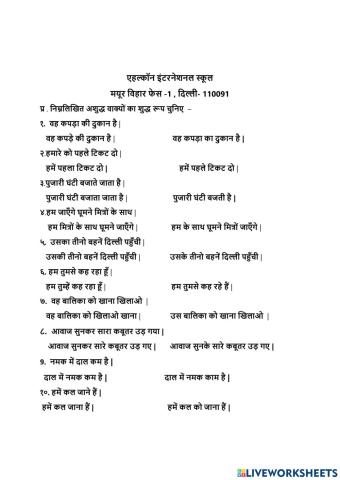 एहल्कॉन इंटरनेशनल स्कूल
मयूर विहार फेस -1 , दिल्ली- 110091
प्र . निम्नलिखित अशुद्ध वाक्यों का शुद्ध रूप चुनिए –
१. वह कपड़ा की दुकान है |
वह कपड़े की दुकान है | वह कपड़ा का दुकान है |
२.हमारे को पहले टिकट दो |
हमें पहला टिकट दो | हमें पहले टिकट दो |
३.पुजारी घंटी बजाते जाता है |
पुजारी घंटी बजाता जाता है | पुजारी घंटी बजती है |
४.हम जाएँगे घूमने मित्रों के साथ |
हम मित्रों के साथ घूमने जाएँगे | हम के साथ घूमने मित्रों जाएँगे |
५. उसका तीनो बहनें दिल्ली पहुँची |
उसकी तीनो बहनें दिल्ली पहुँची | उसके तीनो बहनें दिल्ली पहुँची |
६. हम तुमसे कह रहा हूँ |
हम तुम्हें कह रहा हूँ | हम तुमसे कह रहे हैं |
७. वह बालिका को खाना खिलाओ |
वह बालिका को खिलाओ खाना | उस बालिका को खाना खिलाओ |
८. आवाज सुनकर सारा कबूतर उड़ गया |
आवाज सुनकर सारे कबूतर उड़ गए | आवाज सुनके सारे कबूतर उड़ गए |
9. नमक में दाल कम है |
दाल में नमक कम है | दाल में नमक काम है |
१०. हमें कल जाने हैं |
हमें कल जाना हैं | हमें कल को जाना हैं |
LIVEWORKSHEETS